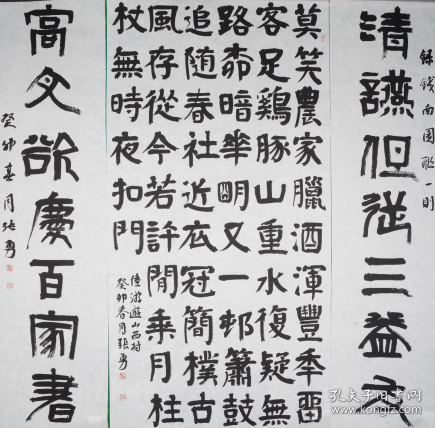 錄錢南園聯一則
清讌但從三益友
莫笑農家臘酒渾豐年留
客足鷄豚山重水復疑無
路桺暗華朙又一邨簫鼓
追随春社近衣冠簡樸古
風存從今若許閒乘月柱
杖無時夜扣門
陸游遊山西村
癸卯春月張勇
高文欲廣百家書
癸卯春月張勇
孔夫子旧书网
www.kongfz.com